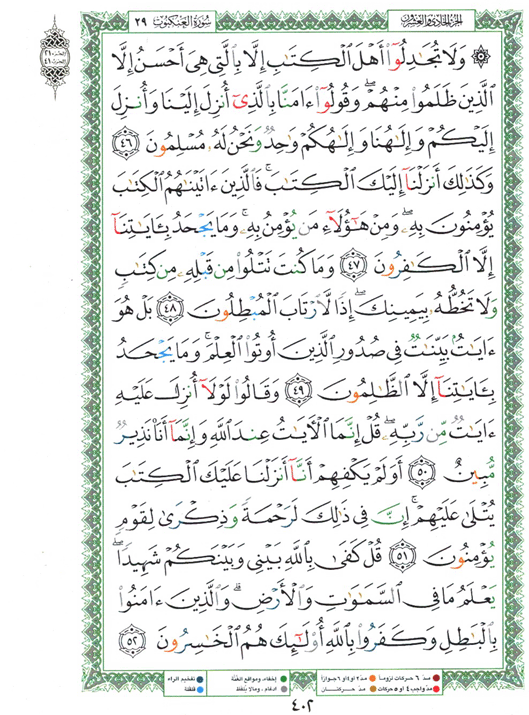 الجزء الحادي والعشرون
سورة العنكبوت ٢٩
۞ وَلَا تُجَـٰدِلُوٓا۟ أَهْلَ ٱلْكِتَـٰبِ إِلَّا بِٱلَّتِى هِىَ أَحْسَنُ إِلَّا
ٱلَّذِينَ ظَلَمُوا۟ مِنْهُمْ ۖ وَقُولُوٓا۟ ءَامَنَّا بِٱلَّذِىٓ أُنزِلَ إِلَيْنَا وَأُنزِلَ
إِلَيْكُمْ وَإِلَـٰهُنَا وَإِلَـٰهُكُمْ وَٰحِدٌ وَنَحْنُ لَهُۥ مُسْلِمُونَ ٤٦
وَكَذَٰلِكَ أَنزَلْنَآ إِلَيْكَ ٱلْكِتَـٰبَ ۚ فَٱلَّذِينَ ءَاتَيْنَـٰهُمُ ٱلْكِتَـٰبَ
يُؤْمِنُونَ بِهِۦ ۖ وَمِنْ هَـٰٓؤُلَآءِ مَن يُؤْمِنُ بِهِۦ ۚ وَمَا يَجْحَدُ بِـَٔايَـٰتِنَآ
إِلَّا ٱلْكَـٰفِرُونَ ٤٧ وَمَا كُنتَ تَتْلُوا۟ مِن قَبْلِهِۦ مِن كِتَـٰبٍ
وَلَا تَخُطُّهُۥ بِيَمِينِكَ ۖ إِذًا لَّٱرْتَابَ ٱلْمُبْطِلُونَ ٤٨ بَلْ هُوَ
ءَايَـٰتٌۢ بَيِّنَـٰتٌ فِى صُدُورِ ٱلَّذِينَ أُوتُوا۟ ٱلْعِلْمَ ۚ وَمَا يَجْحَدُ
بِـَٔايَـٰتِنَآ إِلَّا ٱلظَّـٰلِمُونَ ٤٩ وَقَالُوا۟ لَوْلَآ أُنزِلَ عَلَيْهِ
ءَايَـٰتٌ مِّن رَّبِّهِۦ ۖ قُلْ إِنَّمَا ٱلْـَٔايَـٰتُ عِندَ ٱللَّهِ وَإِنَّمَآ أَنَا۠ نَذِيرٌ
مُّبِينٌ ٥٠ أَوَلَمْ يَكْفِهِمْ أَنَّآ أَنزَلْنَا عَلَيْكَ ٱلْكِتَـٰبَ
يُتْلَىٰ عَلَيْهِمْ ۚ إِنَّ فِى ذَٰلِكَ لَرَحْمَةً وَذِكْرَىٰ لِقَوْمٍ
يُؤْمِنُونَ ٥١ قُلْ كَفَىٰ بِٱللَّهِ بَيْنِى وَبَيْنَكُمْ شَهِيدًا ۖ
يَعْلَمُ مَا فِى ٱلسَّمَـٰوَٰتِ وَٱلْأَرْضِ ۗ وَٱلَّذِينَ ءَامَنُوا۟
بِٱلْبَـٰطِلِ وَكَفَرُوا۟ بِٱللَّهِ أُو۟لَـٰٓئِكَ هُمُ ٱلْخَـٰسِرُونَ ٥٢
مدّ ٦ حركات لزوماً مدّ ٢ او ٤ او ٦ جوازاً إخفاء، ومواقع الغُنَّة تفخيم الراء
مدّ واجب ٤ او ٥ حركات مدّ حركتان ادغام، ومالا يُلفظ قلقلة
٤٠٢